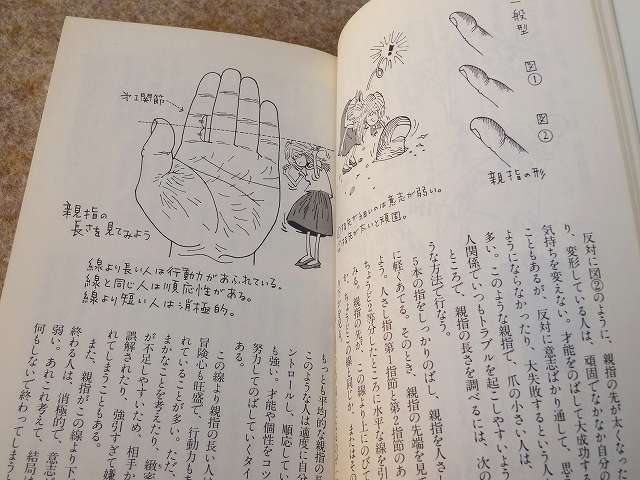 一般型
図①
図②
親指の形
親指が細いのは意志が弱い。
親指が太いと頑固。
反対に図②のように、親指の先が太くなった
り、変形している人は、頑固でなかなか自分の
気持ちを変えない。才能をのばして大成功する
こともあるが、反対に意志ばかり通して、思う
ようにならなかったり、大失敗するという人も
多い。このような親指で、爪の小さい人は、
人関係でいつもトラブルを起こしやすいよう
ところで、親指の長さを調べるには、次の
うな方法で行なう。
5本の指をしっかりのばし、親指を人さし
に軽くあてる。そのとき、親指の先端を見て
よう。人さし指の第1指節と第2指節のあ
ちょうど2等分したところに水平な線を引
みる。親指の先が、この線より上にのびて
第1関節
親指の
長さを見てみよう
線より長い人は行動力があふれている。
線と同じ人は順応性がある。
線より短い人は消極的。
もっとも平均的な親指の長
このような人は適度に自分
ントロールし、順応してい
も強い。才能や個性をコツ
努力してのばしていくタイ
ある。
この線より親指の長い人は
冒険心も旺盛で、行動力もあ
れていることが多い。ただ、
まかなことを考えたり、緻密
が不足しやすいため、相手か
誤解されたり、強引すぎて嫌
れてしまうこともある。
また、親指がこの線より下
終わる人は、消極的で、意志が
弱い。あれこれ考えて、結局は
何もしないで終わってしまう